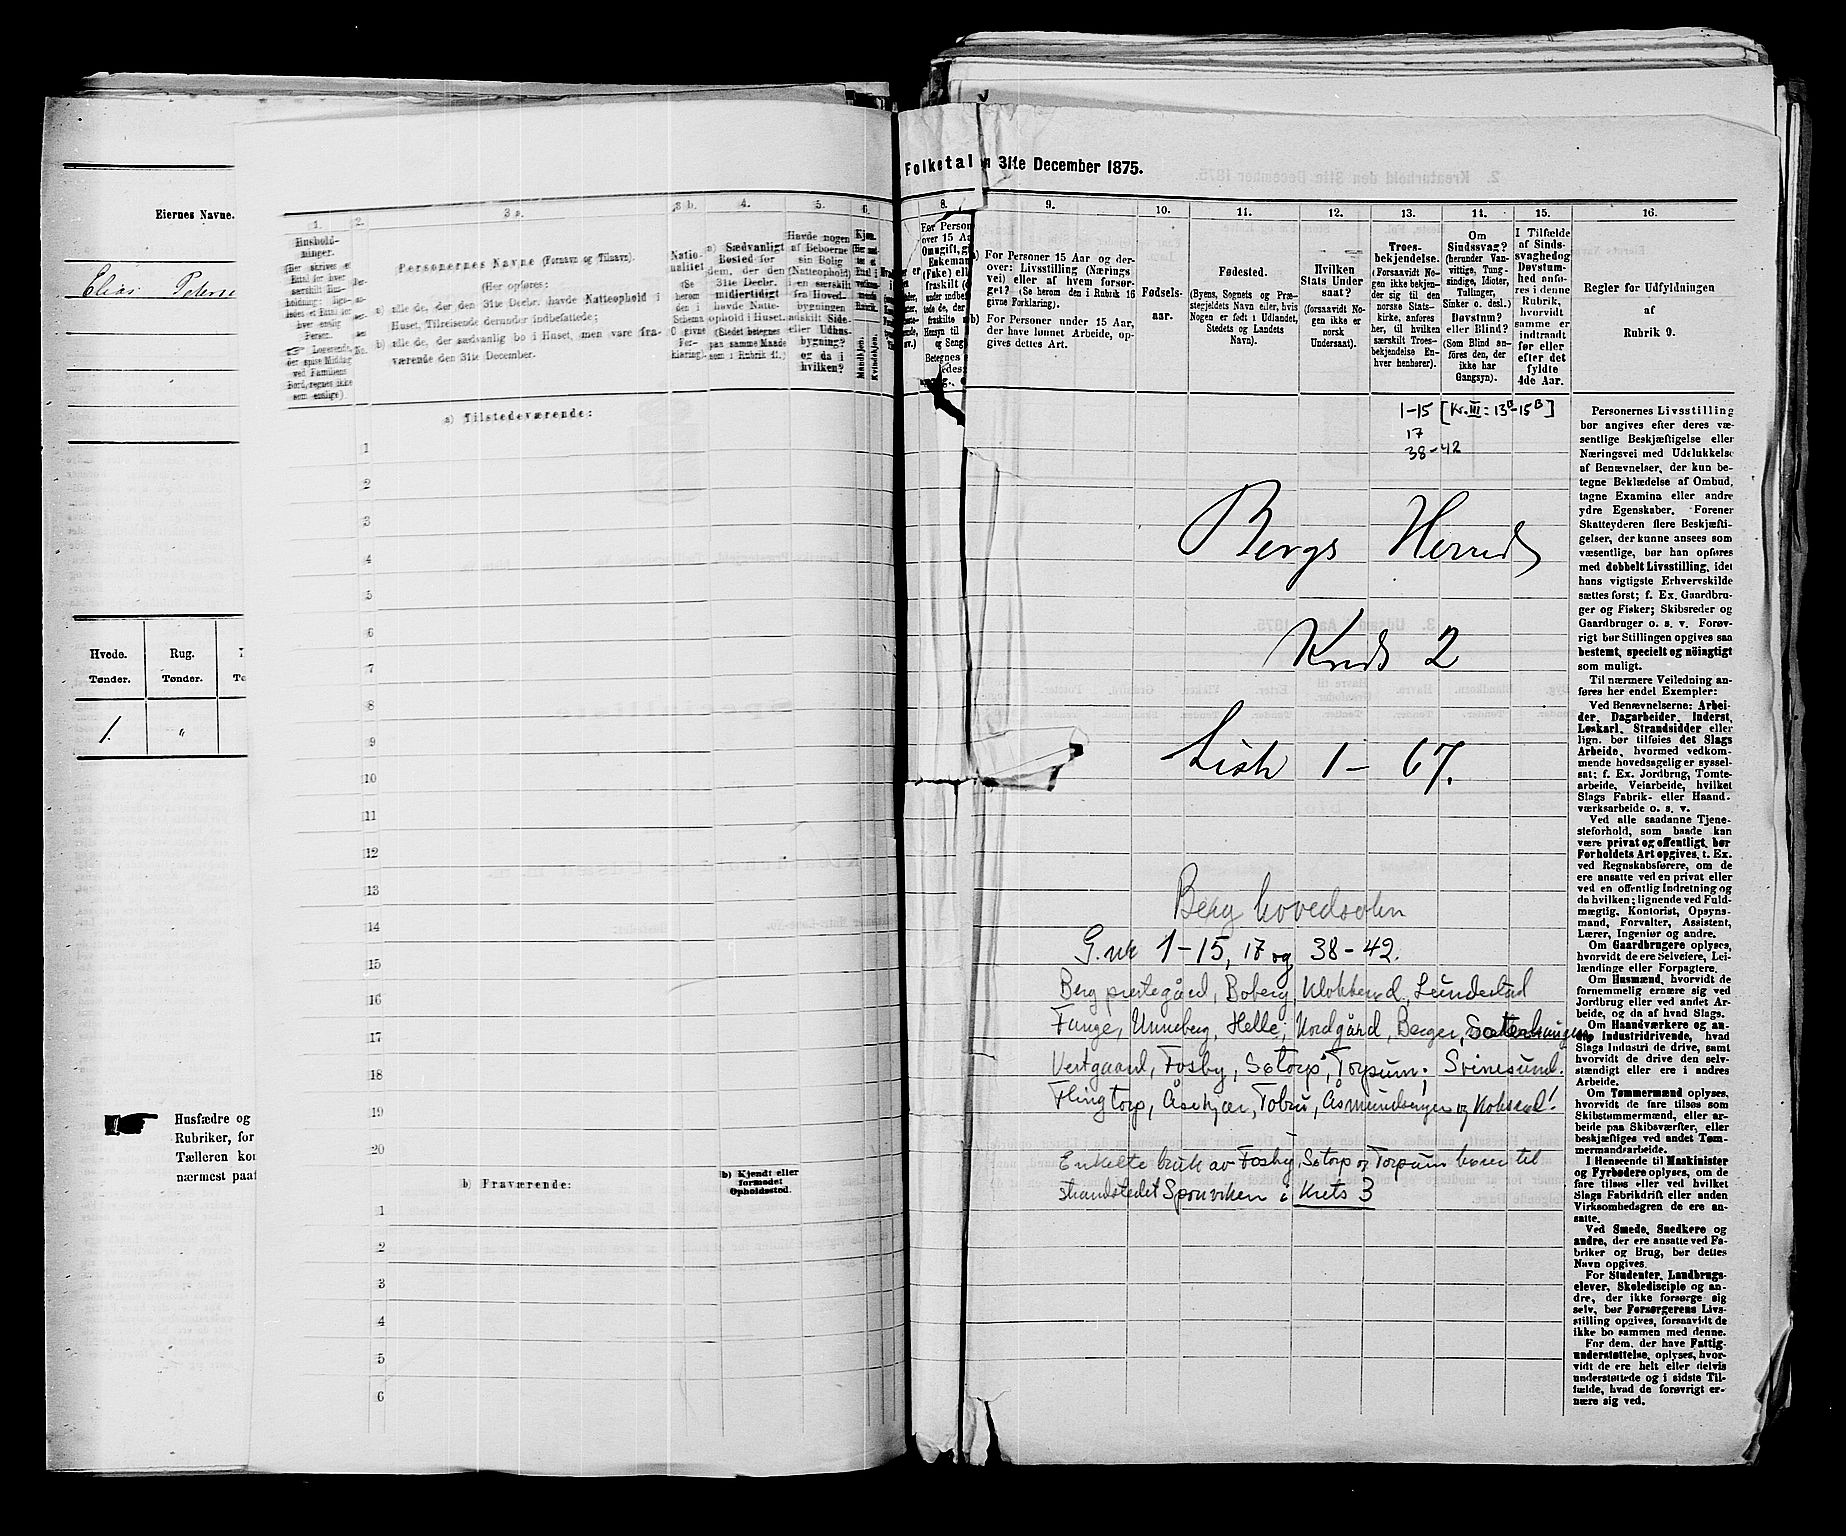 Eiernes Navne.
Elias Peterse
Hvede. Rug.
Tønder. Tønder.
1. "
Husfædre og
Rubriker, for
Tælleren kor
nærmest paaf
Folketal
n 31te December 1875.
1. 2. 3 a. 3 b. 4. 5. 6.
Hushold-
ninger.
Personernes Navne (Fornavn og Tilnavn).
(Her opføres:
a) alle de, der den 31te Decbr. havde Natteophold i
Huset, Tilreisende derunder indbefattede;
b) alle de, der sædvanlig bo i Huset, men vare fra-
værende den 31te December.
Natio-
nalitet
(Se
herom
den i
Schema
O givne
For-
klaring).
a) Sædvanligt
Bosted for
dem, der den
31te Decbr.
midlertidigt
havde Natte-
ophold i Huset.
(Stedet betegnes
paa samme Maade
som i Rubrik 11.)
Havde nogen
af Beboerne
sin Bolig
(Natteophold)
i en særskilt
fra Hoved-
bygningen
adskilt Side-
eller Udhus-
bygning?
og da i
hvilken?
Kjøn.
Mandkjøn.
Kvindekjøn.
a) Tilstedeværende:
1
2
3
4
5
6
7
8
9
10
11
12
13
14
15
16
17
18
19
20
b) Fraværende:
b) Kjendt eller
formodet
Opholdssted.
1
2
3
4
5
6
8. 9. 10. 11. 12. 13. 14. 15. 16.
a) For Personer 15 Aar og der-
over: Livsstilling (Nærings
vei) eller af hvem forsør-
get? (Se herom den i Rubrik 16
givne Forklaring).
b) For Personer under 15 Aar,
der have lønnet Arbeide, op-
gives dettes Art.
Fødsels-
aar.
Fødested.
(Byens, Sognets og Præ-
stegjeldets Navn eller, hvis
Nogen er født i Udlandet,
Stedets og Landets
Navn).
Hvilken
Stats Under
saat?
(forsaavidt No-
gen ikke er
norsk
Undersaat).
Troes-
bekjendelse.
(Forsaavidt No-
gen ikke bekjen-
der sig til den
norske Stats-
kirke, anføres
her, til hvilken
særskilt Troes-
bekjendelse En-
hver henhører).
Om
Sindssvag?
(herunder Van-
vittige, Tung-
sindige, Idioter,
Tullinger,
Sinker o. desl.)
Døvstum?
eller Blind?
(Som Blind an-
føres den, der
ikke har
Gangsyn).
I Tilfælde
af Sinds-
svaghed og
Døvstum-
hed anfø-
res i denne
Rubrik,
hvorvidt
samme er
indtraadt
før eller
efter det
fyldte
4de Aar.
Regler for Udfyldningen
af
Rubrik 9.
1-15 [Kr. III: 13B-15B]
17
38-42
Bergs Herred
Kreds 2
Liste 1 - 67.
Berg hovedsokn
G.nr 1-15, 17 og 38-42.
Berg prestegård, Boberg, Klokkerud, Lunderstad
Fange, Unneberg, Helle, Nordgård, Berger,
Vestgaard, Fosby, Sotorp, Torpum, Svinesund.
Flingtorp, Åsekjær, Tobru, Åsmundsengen og
Enkelte bruk av Fosby, Sotorp og Torpum hører til
strandstedet Sponviken i Krets 3
Personernes Livsstilling
bør angives efter deres væ-
sentlige Beskjæftigelse eller
Næringsvei med Udelukkelse
af Benævnelser, der kun be-
tegne Beklædelse af Ombud,
tagne Examina eller andre
ydre Egenskaber. Forener
Skatteyderen flere Beskjæfti-
gelser, der kunne ansees som
væsentlige, bør han opføres
med dobbelt Livsstilling, idet
hans vigtigste Erhvervskilde
sættes først; f. Ex. Gaardbru-
ger og Fisker; Skibsreder og
Gaardbruger o. s. v. Forøv-
rigt bør Stillingen opgives saa
bestemt, specielt og nöiagtigt
som muligt.
Til nærmere Veiledning an-
føres her endel Exempler:
Ved Benævnelserne: Arbei-
der, Dagarbeider, Inderst,
Løskarl, Strandsidder eller
lign. bør tilføies det Slags
Arbeide, hvormed vedkom-
mende hovedsagelig er syssel-
sat; f. Ex. Jordbrug, Tomte-
arbeide, Veiarbeide, hvilket
Slags Fabrik- eller Haand-
værksarbeide o. s. v.
Ved alle saadanne Tjene-
steforhold, som baade kan
være privat og offentligt, bør
Forholdets Art opgives, t. Ex.
ved Regnskabsførere, om de
ere ansatte ved en privat eller
ved en offentlig Indretning og
da hvilken; lignende ved Fuld-
mægtig, Kontorist, Opsyns-
mand, Forvalter, Assistent,
Lærer, Ingeniør og andre.
Om Gaardbrugere oplyses,
hvorvidt de ere Selveiere, Lei-
lændinge eller Forpagtere.
Om Husmænd, hvorvidt de
fornemmelig ernære sig ved
Jordbrug eller ved andet Ar-
beide, og da af hvad Slags.
Om Haandværkere og an-
dre Industridrivende, hvad
Slags Industri de drive, samt
hvorvidt de drive den selv-
stændigt eller ere i andres
Arbeide.
Om Tømmermænd oplyses,
hvorvidt de fare tilsøs som
Skibstømmermænd, eller ar-
beide paa Skibsværfter, eller
beskjæftiges ved andet Tøm-
mermandsarbeide.
I Henseende til Maskinister
og Fyrbødere oplyses, om de
fare tilsøs eller ved hvilket
Slags Fabrikdrift eller anden
Virksomhedsgren de ere an-
satte.
Ved Smede, Snedkere og
andre, der ere ansatte ved Fa-
briker og Brug, bør dettes
Navn opgives.
For Studenter, Landbrugs-
elever, Skoledisciple og an-
dre, der ikke forsørge sig
selv, bør Forsørgerens Livs-
stilling opgives, forsaavidt de
ikke bo sammen med denne.
For dem, der have Fattig-
understøttelse, oplyses, hvor-
vidt de ere helt eller delvis
understøttede og i sidste Til-
fælde, hvad de forøvrigt er-
nære sig ved.